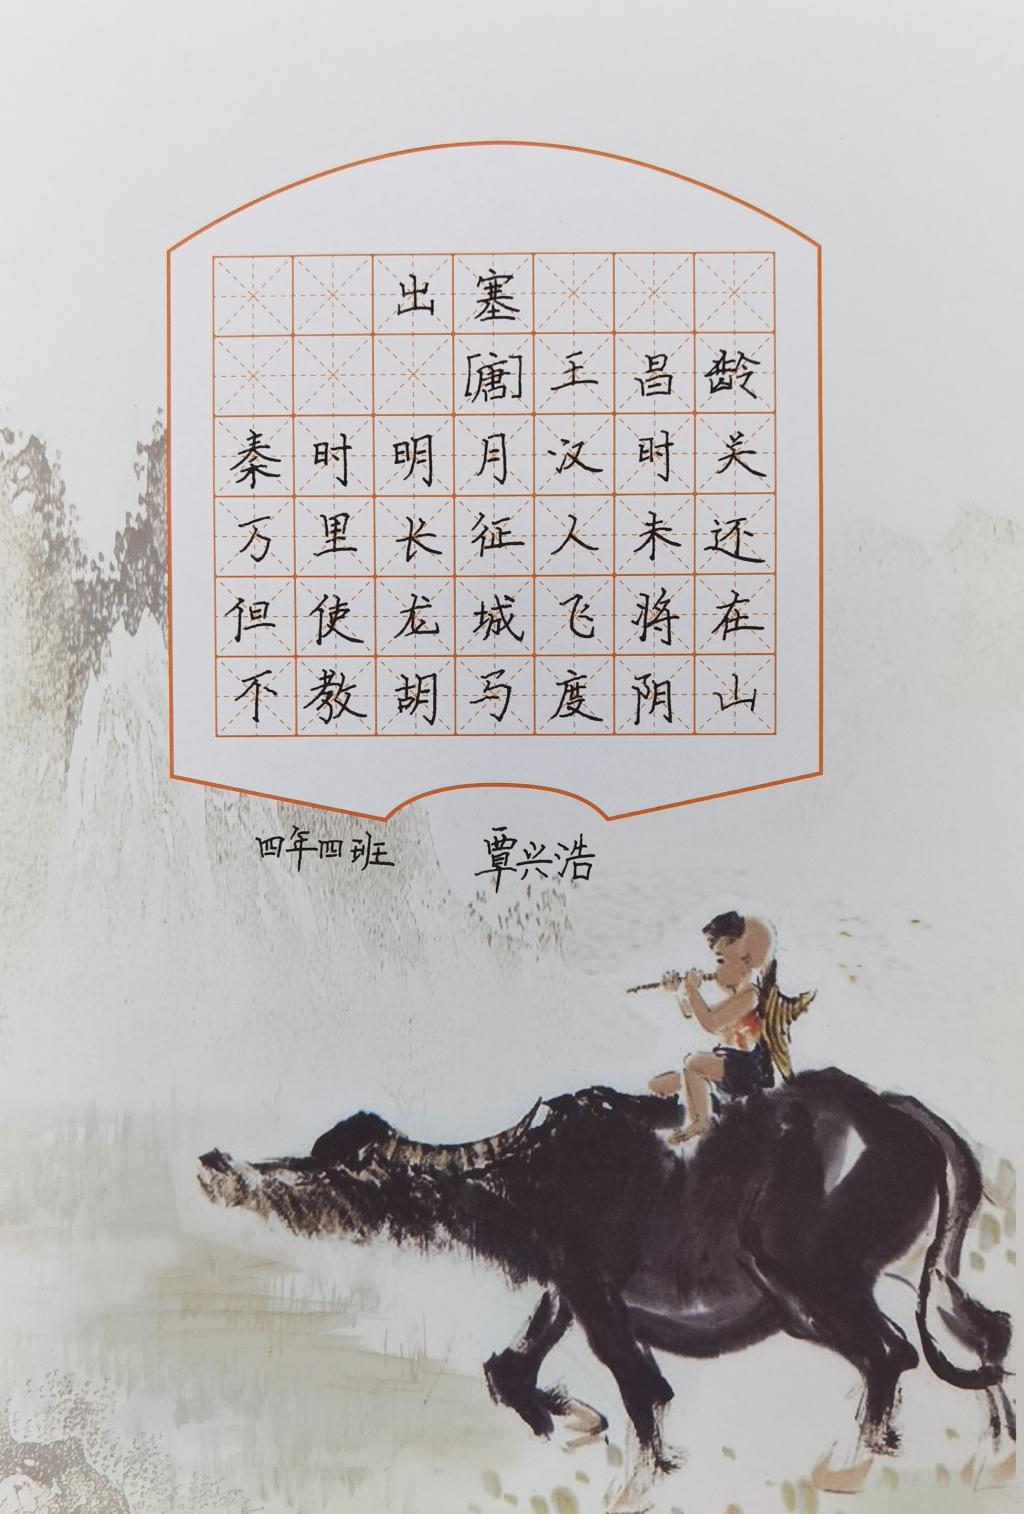 出塞
[唐]王昌龄
秦时明月汉时关
万里长征人未还
但使龙城飞将在
不教胡马度阴山
四年四班 覃兴浩